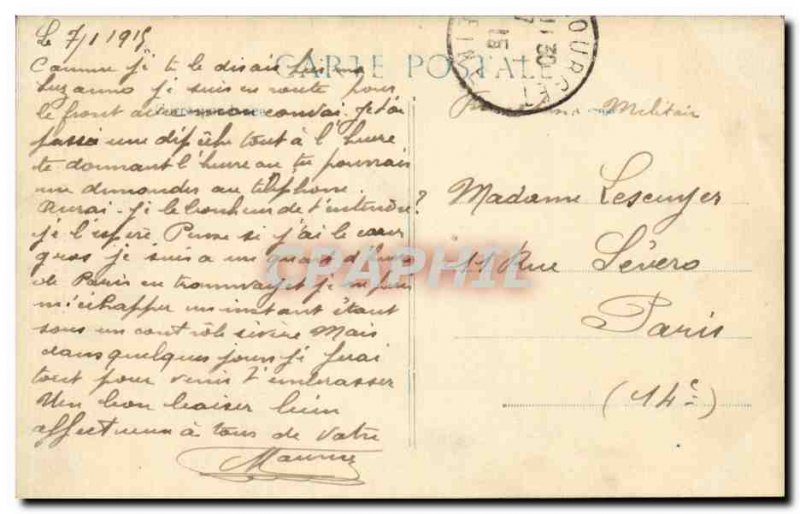 Le 7/1 1915
CARTE POSTALE
Comme je te le disais
Suzanne je suis en route pour
le front avec mon convoi. Je t'ai
passé une dépêche tout à l'heure
te donnant l'heure où tu pourrais
me demander au téléphone.
Aurai-je le bonheur de t'entendre?
je l'espère. Pense si j'ai le cœur
gros je suis à un quart d'heure
de Paris en tramway et je ne puis
m'échapper un instant étant
sous un contrôle sévère Mais
dans quelques jours je ferai
tout pour venir t'embrasser
Un bon baiser bien
affectueux à tous de votre
Maurice
BOURGET
SEINE
Militaire
Madame Lescuyer
11 Rue Sévero
Paris
(14e)
CPAPHIL